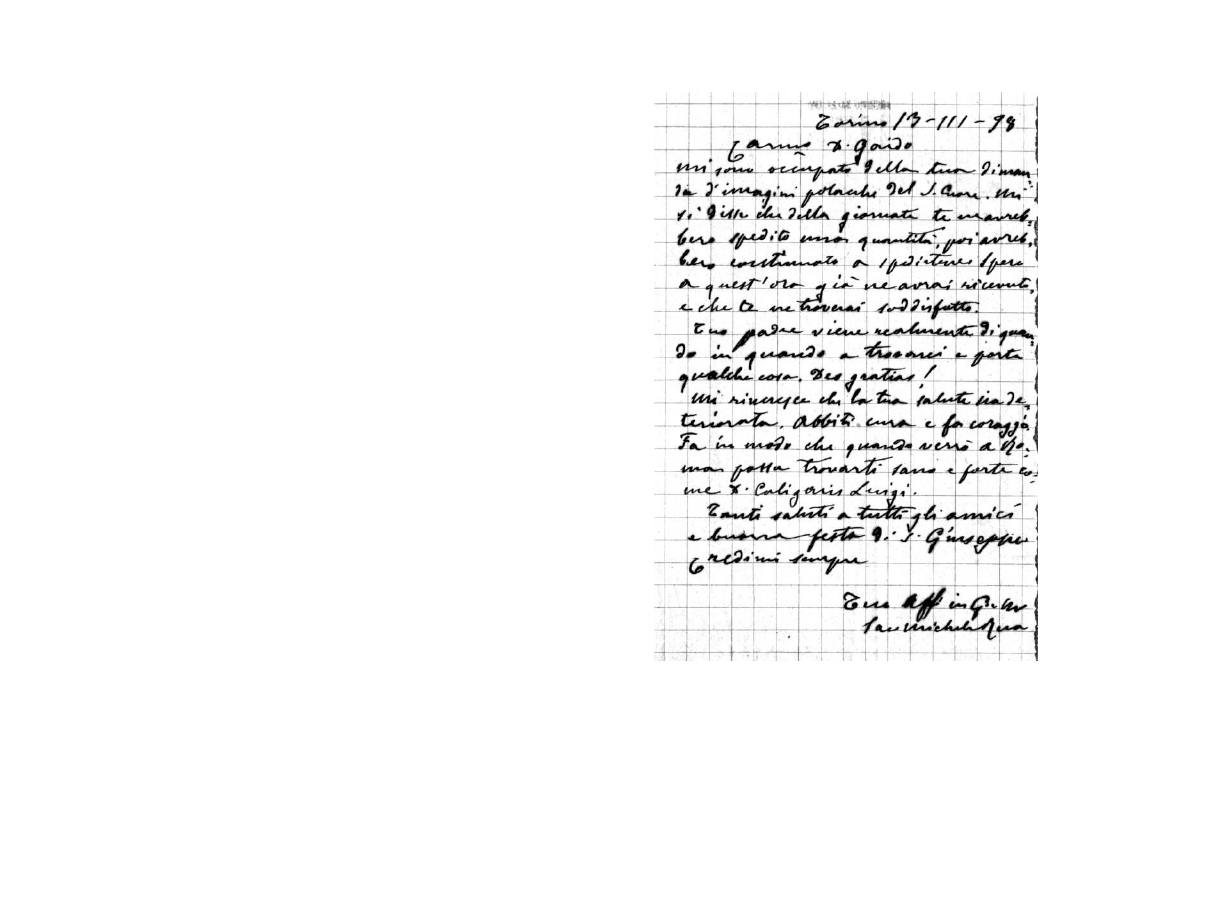 Torino 13-III-98
Carmo D. Gaido
mi sono occupato della tua diman-
da d'imagini polacche del S. Cuore. Mi
si disse che della giornata te ne avreb-
bero spedito una quantità, poi avreb-
bero continuato a spedirtene. Spero
a quest'ora già ne avrai ricevute,
e che te ne troverai soddisfatto.
Tuo padre viene realmente di quan-
do in quando a trovarci e porta
qualche cosa. Deo gratias!
Mi rincresce che la tua salute sia de-
teriorata. Abbiti cura e fa coraggio.
Fa in modo che quando verrò a Ro-
ma possa trovarti sano e forte co-
me D. Caligaris Luigi.
Tanti saluti a tutti gli amici
e buona festa di S. Giuseppe
Credimi sempre
Tuo aff in G. e M
Sac Michele Rua